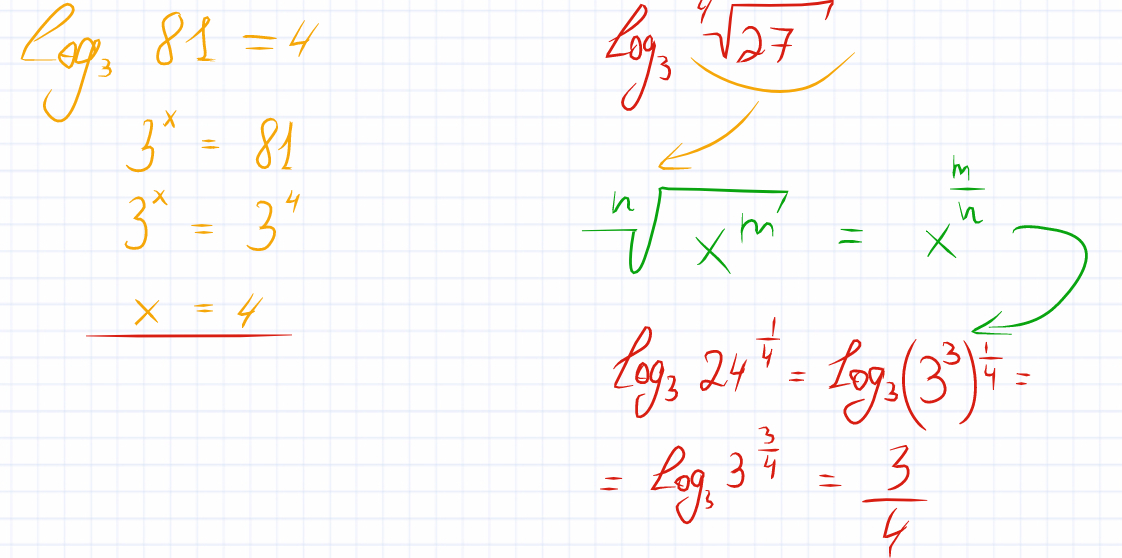 log₃ 81 = 4
3ˣ = 81
3ˣ = 3⁴
x = 4
log₃ ⁴√27
ⁿ√(xᵐ) = x^(m/n)
log₃ 24^(1/4) = log₃ (3³)^(1/4) =
= log₃ 3^(3/4) = 3/4